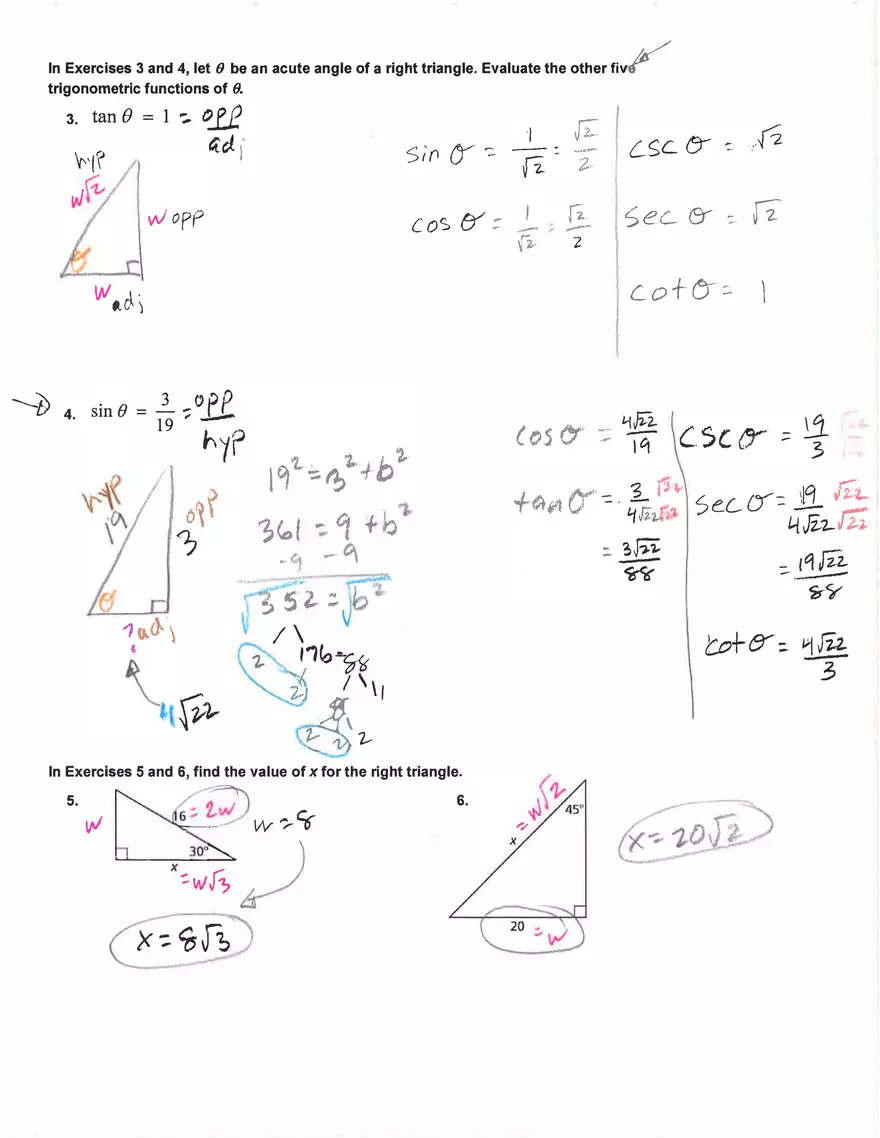 In Exercises 3 and 4, let θ be an acute angle of a right triangle. Evaluate the other five
trigonometric functions of θ.
3. tan θ = 1 = opp/adj
hyp
w√2
w opp
θ
w adj
sin θ = 1/√2 = √2/2
cos θ = 1/√2 = √2/2
csc θ = √2
sec θ = √2
cot θ = 1
4. sin θ = 3/19 = opp/hyp
hyp
19
opp
3
θ
? adj
4√22
19² = 3² + b²
361 = 9 + b²
-9 -9
√352 = √b²
2 176 = 88
2 8 11
2 2 2
cos θ = 4√22/19
tan θ = 3/4√22 √22/√22
= 3√22/88
csc θ = 19/3
sec θ = 19/4√22 √22/√22
= 19√22/88
cot θ = 4√22/3
In Exercises 5 and 6, find the value of x for the right triangle.
5.
w
16 = 2w
30°
x
= w√3
w = 8
x = 8√3
6.
= w√2
45°
x
20 = w
x = 20√2